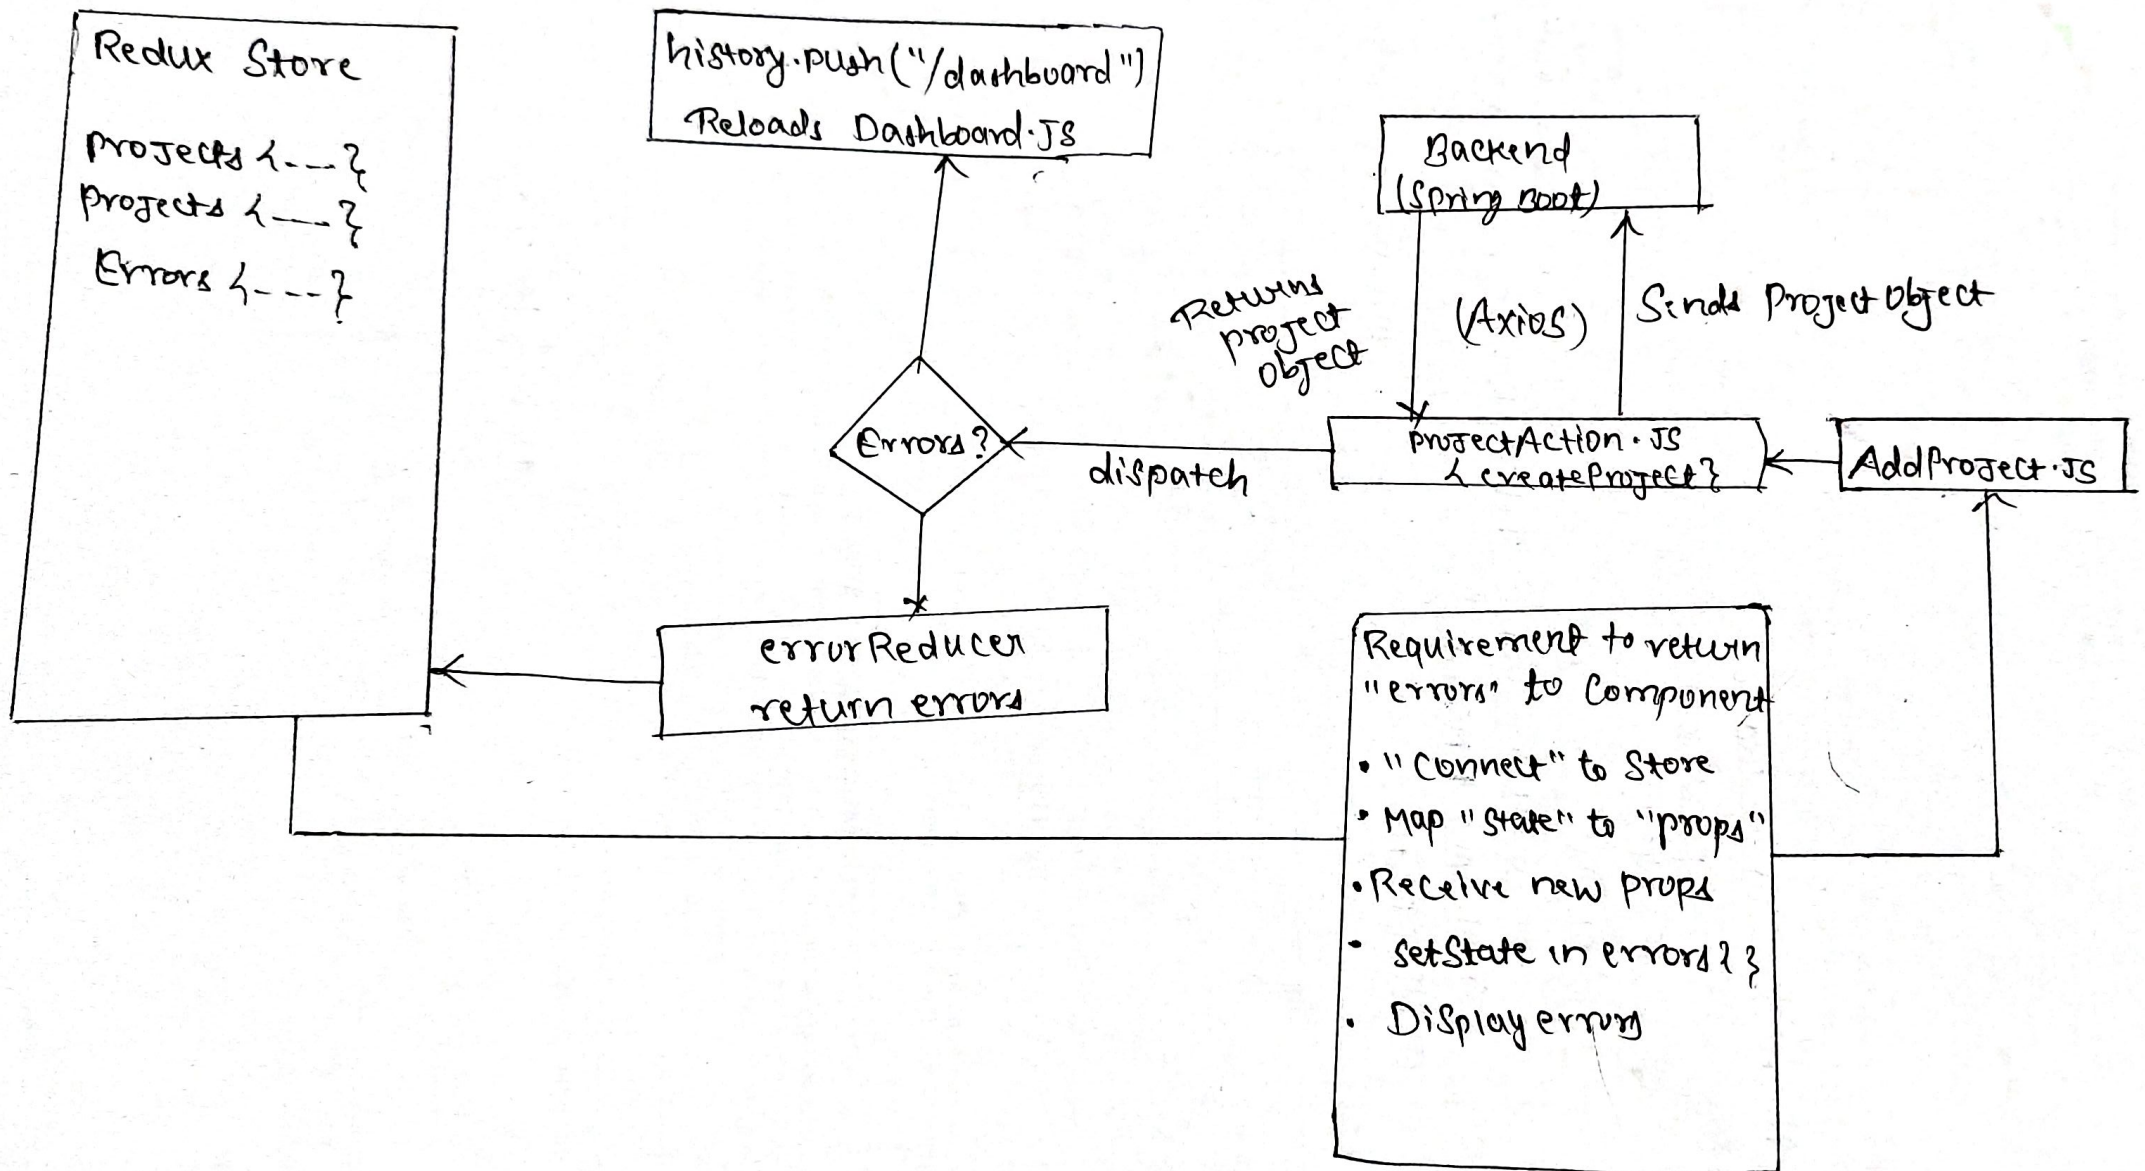 Redux Store
Projects {---}
Projects {---}
Errors {---}
history.push("/dashboard")
Reloads Dashboard.JS
Backend
(Spring Boot)
Returns
project
object
(Axios)
Sends Project Object
Errors?
dispatch
projectAction.JS
{createProject}
AddProject.JS
errorReducer
return errors
Requirement to return
"errors" to Component
• "Connect" to Store
• Map "State" to "props"
• Receive new props
• setState in errors { }
• Display errors